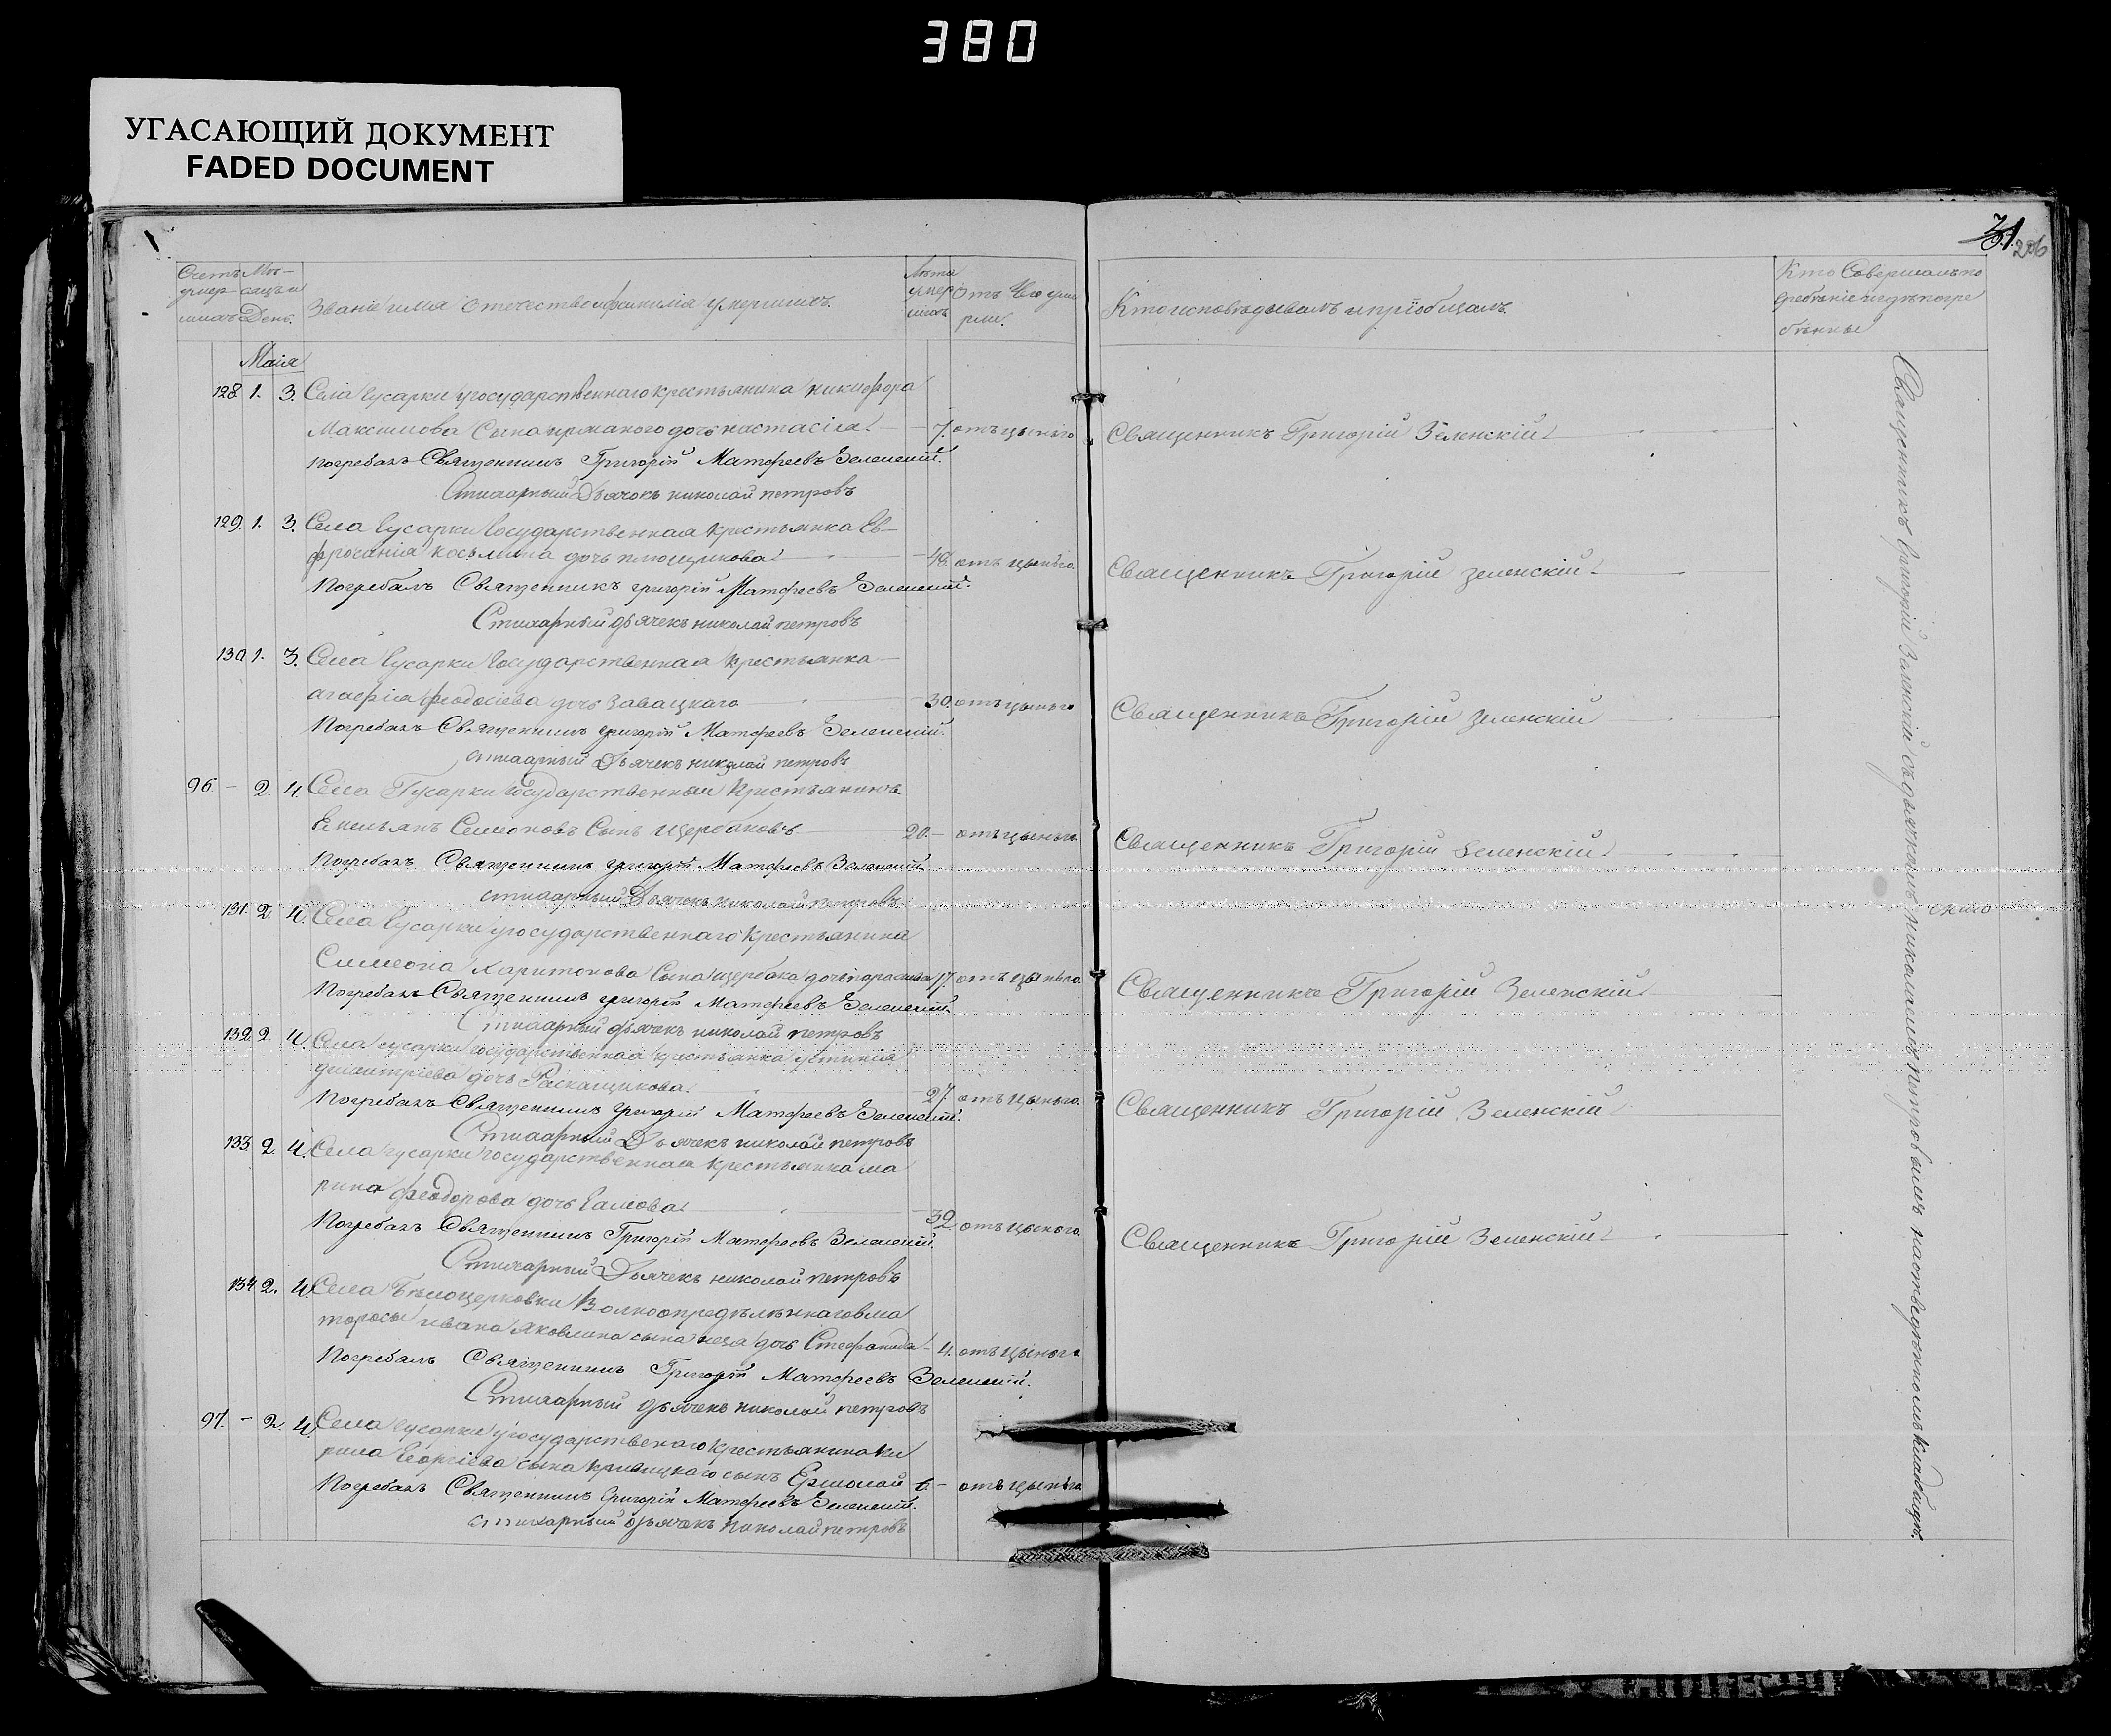 380
УГАСАЮЩИЙ ДОКУМЕНТ
FADED DOCUMENT
31
206
Счетъ умер шихъ
Мѣ- сяцъ и День.
Званіе имя отечество и фамилія умершихъ.
Лѣта умер шихъ
Отъ Чего уме рли.
Кто исповѣдывалъ и пріобщалъ.
Кто Совершалъ по гребѣніе и гдѣ погре бѣнны
Маія
128. 1. 3. Села Гусарки государственнаго крестьянина никифора
Максимова Сына дочь настасія 7. отъ цынги
Священникъ Григорій Зеленскій
погребалъ Священникъ Григорій Матфеевъ Зеленскій.
Стихарный Дьячокъ николай петровъ
129. 1. 3. Села Гусарки Государственная крестьянка Ев-
фросинія косьмина дочь 48. отъ цынги
Священникъ Григорій Зеленскій
Погребалъ Священникъ григорій Матфеевъ Зеленскій.
Стихарный дьячекъ николай петровъ
130. 1. 3. Села Гусарки Государственная крестьянка
агафія феодосіева дочь Завацкаго 30. отъ цынги
Священникъ Григорій Зеленскій
Погребалъ Священникъ григорій Матфеевъ Зеленскій.
стихарный Дьячекъ николай петровъ
96. - 2. 4. Села Гусарки Государственный Крестьянинъ
Емельянъ Семеоновъ Сынъ Щербаковъ 20. - отъ цынги
Священникъ Григорій Зеленскій
Погребалъ Священникъ григорій Матфеевъ Зеленскій.
стихарный Дьячекъ николай петровъ
131. 2. 4. Села Гусарки государственнаго крестьянина
Симеона Харитонова Сына щербака дочь 17. отъ цынги
Священникъ Григорій Зеленскій
Погребалъ Священникъ григорій Матфеевъ Зеленскій.
Стихарный дьячекъ николай петровъ
132. 2. 4. Села гусарки государственная крестьянка устинія
димитріева дочь Раскащикова. 27. отъ цынги
Священникъ Григорій Зеленскій
Погребалъ Священникъ григорій Матфеевъ Зеленскій.
Стихарный Дьячекъ николай петровъ
133. 2. 4. Села гусарки государственная крестьянка ма
рина феодорова дочь 32. отъ цынги
Священникъ Григорій Зеленскій
Погребалъ Священникъ Григорій Матфеевъ Зеленскій.
Стихарный Дьячекъ николай петровъ
134. 2. 4. Села Бѣлоцерковки в ма
тросы ивана яковлина сына дочь Стефанида 4. отъ цынги
Погребалъ Священникъ Григорій Матфеевъ Зеленскій.
Стихарный дьячекъ николай петровъ
97. - 2. 4. Села Гусарки государственаго крестьянина Ки
рила Георгіева сына кривицкаго сынъ Ермолай 6. - отъ цынги
Погребалъ Священникъ Григорій Матфеевъ Зеленскій.
стихарный дьячекъ николай петровъ
Священникъ Григорій Зеленскій съ дьячкомъ николаемъ петровымъ на кладбищѣ.